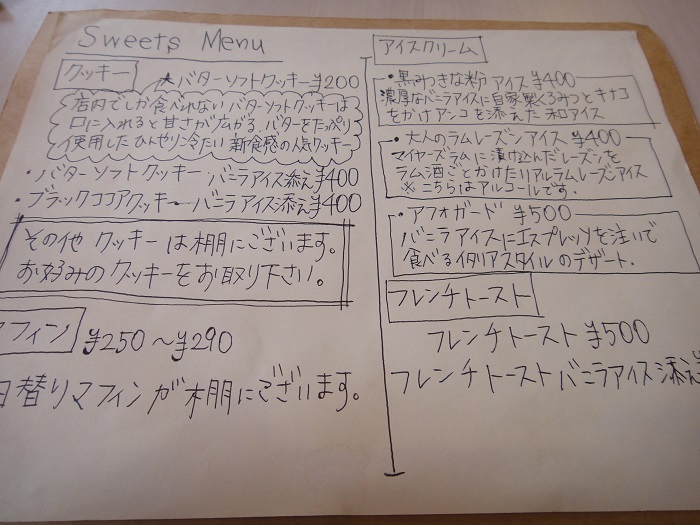 Sweets Menu
クッキー
★バターソフトクッキー ¥200
店内でしか食べれないバターソフトクッキーは
口に入れると甘さが広がる、バターをたっぷり
使用したひんやり冷たい新食感の人気クッキー
・バターソフトクッキー バニラアイス添え ¥400
・ブラックココアクッキー バニラアイス添え ¥400
その他 クッキーは棚にございます。
お好みのクッキーをお取り下さい。
フィン
¥250～¥290
日替りマフィンが棚にございます。
アイスクリーム
・黒みつきな粉アイス ¥400
濃厚なバニラアイスに自家製くるみつとキナコ
をかけアンコを添えた和アイス
・大人のラムレーズンアイス ¥400
マイヤーズラムに漬け込んだレーズンを
ラム酒ごとかけたリアルラムレーズンアイス
※こちらはアルコールです.
・アフォガード ¥500
バニラアイスにエスプレッソを注いで
食べるイタリアスタイルのデザート.
フレンチトースト
フレンチトースト ¥500
フレンチトーストバニラアイス添え